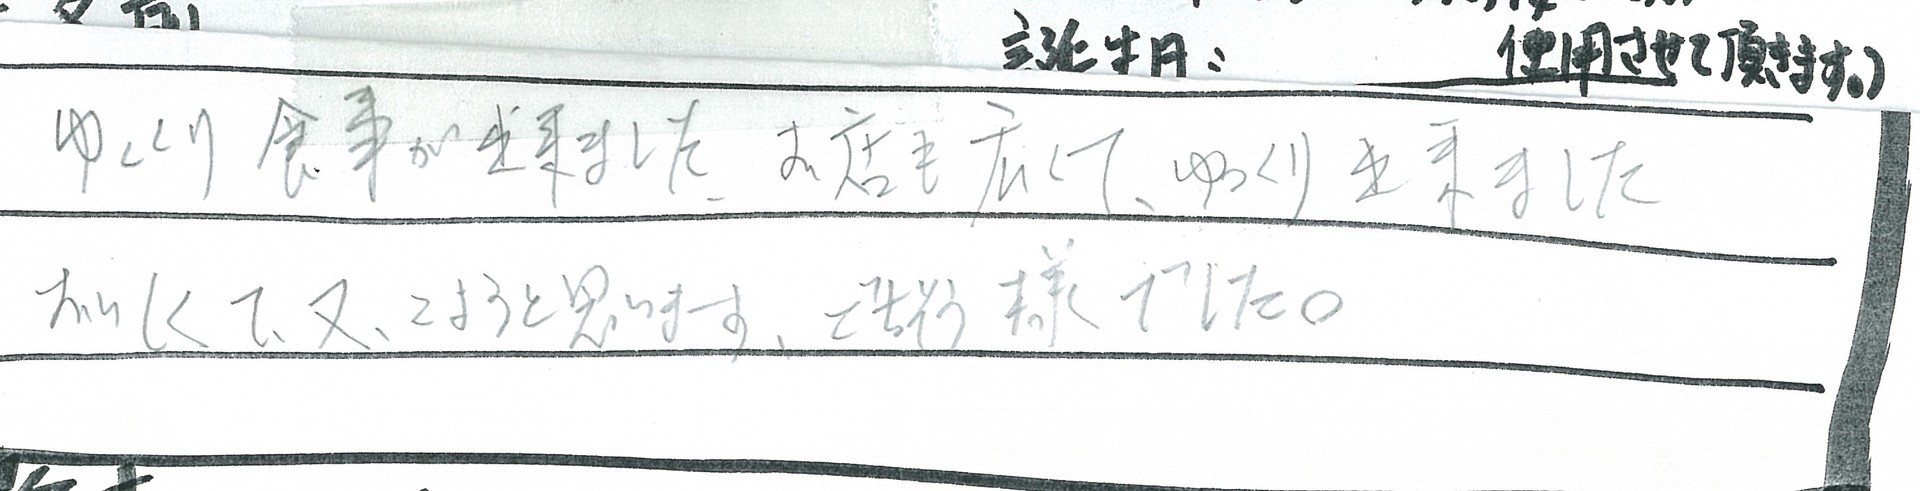 誕生月: 使用させて頂きます。)
ゆっくり食事が出来ました、お店も広くて、ゆっくり出来ました
おいしくて、又、こようと思います、ごちそう様でした。